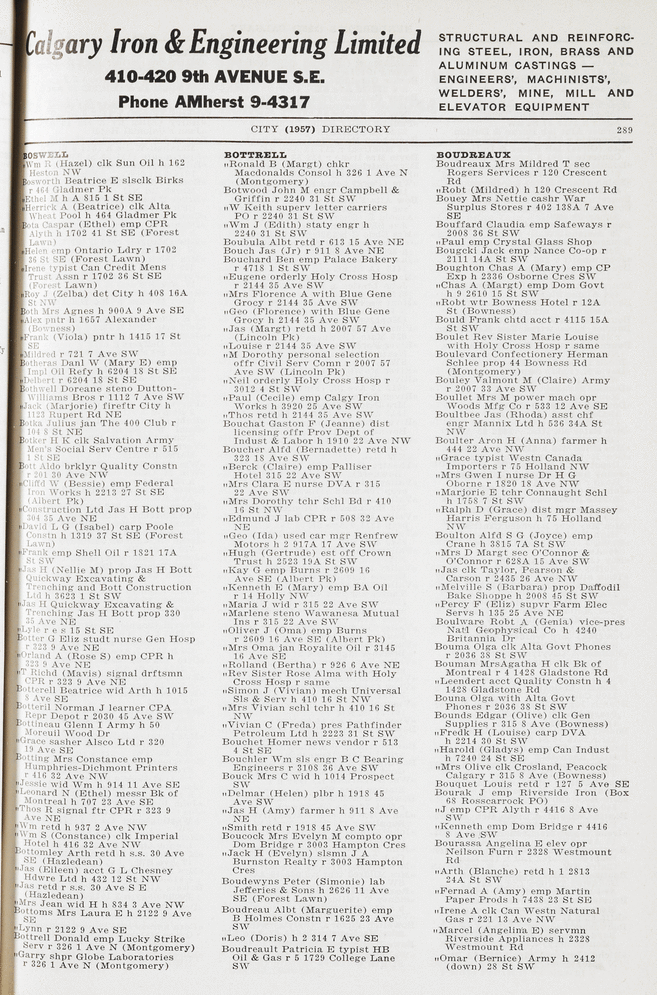 Calgary Iron & Engineering Limited
410-420 9th AVENUE S.E.
Phone AMherst 9-4317
STRUCTURAL AND REINFORC-
ING STEEL, IRON, BRASS AND
ALUMINUM CASTINGS —
ENGINEERS', MACHINISTS',
WELDERS', MINE, MILL AND
ELEVATOR EQUIPMENT
CITY (1957) DIRECTORY
289
BOSWELL
"Wm R (Hazel) clk Sun Oil h 162
Heston NW
Bosworth Beatrice E slsclk Birks
r 464 Gladmer Pk
"Ethel M h A 815 1 St SE
"Herrick A (Beatrice) clk Alta
Wheat Pool h 464 Gladmer Pk
Bota Caspar (Ethel) emp CPR
Alyth h 1702 41 St SE (Forest
Lawn)
"Helen emp Ontario Ldry r 1702
36 St SE (Forest Lawn)
"Irene typist Can Credit Mens
Trust Assn r 1702 36 St SE
(Forest Lawn)
"Roy J (Zelba) det City h 408 16A
St NW
Both Mrs Agnes h 900A 9 Ave SE
"Alex pntr h 1657 Alexander
(Bowness)
"Frank (Viola) pntr h 1415 17 St
SE
"Mildred r 721 7 Ave SW
Botheras Danl W (Mary E) emp
Impl Oil Refy h 6204 18 St SE
"Delbert r 6204 18 St SE
Bothwell Doreane steno Dutton-
Williams Bros r 1112 7 Ave SW
"Jack (Marjorie) fireftr City h
1123 Rupert Rd NE
Botka Julius jan The 400 Club r
104 8 St NE
Botker H K clk Salvation Army
Men's Social Serv Centre r 515
1 St SE
Bott Aldo brklyr Quality Constn
r 201 30 Ave NW
"Cliffd W (Bessie) emp Federal
Iron Works h 2213 27 St SE
(Albert Pk)
"Construction Ltd Jas H Bott prop
304 35 Ave NE
"David L G (Isabel) carp Poole
Constn h 1319 37 St SE (Forest
Lawn)
"Frank emp Shell Oil r 1821 17A
St SW
"Jas H (Nellie M) prop Jas H Bott
Quickway Excavating &
Trenching and Bott Construction
Ltd h 3623 1 St SW
"Jas H Quickway Excavating &
Trenching Jas H Bott prop 330
35 Ave NE
"Lyle r e s 15 St SE
Botter G Eliz studt nurse Gen Hosp
r 323 9 Ave NE
"Orland A (Rose S) emp CPR h
323 9 Ave NE
"T Richd (Mavis) signal drftsmn
CPR r 323 9 Ave NE
Botterell Beatrice wid Arth h 1015
8 Ave SE
Botteril Norman J learner CPA
Repr Depot r 2030 45 Ave SW
Bottineau Glenn I Army h 50
Moreuil Wood Dr
"Grace sasher Alsco Ltd r 320
19 Ave SE
Botting Mrs Constance emp
Humphries-Dichmont Printers
r 416 32 Ave NW
"Jessie wid Wm h 914 11 Ave SE
"Leonard N (Ethel) messr Bk of
Montreal h 707 23 Ave SE
"Thos R signal ftr CPR r 323 9
Ave NE
"Wm retd h 937 2 Ave NW
"Wm S (Constance) clk Imperial
Hotel h 416 32 Ave NW
Bottomley Arth retd h s.s. 30 Ave
SE (Hazledean)
"Jas (Eileen) acct G L Chesney
Hdwre Ltd h 432 12 St NW
"Jas retd r s.s. 30 Ave S E
(Hazledean)
"Mrs Jean wid H h 834 3 Ave NW
Bottoms Mrs Laura E h 2122 9 Ave
SE
"Lynn r 2122 9 Ave SE
Bottrell Donald emp Lucky Strike
Serv r 326 1 Ave N (Montgomery)
"Garry shpr Globe Laboratories
r 326 1 Ave N (Montgomery)
BOTTRELL
"Ronald B (Margt) chkr
Macdonalds Consol h 326 1 Ave N
(Montgomery)
Botwood John M engr Campbell &
Griffin r 2240 31 St SW
"W Keith superv letter carriers
PO r 2240 31 St SW
"Wm J (Edith) staty engr h
2240 31 St SW
Boubula Albt retd r 613 15 Ave NE
Bouch Jas (Jr) r 911 8 Ave NE
Bouchard Ben emp Palace Bakery
r 4718 1 St SW
"Eugene orderly Holy Cross Hosp
r 2144 35 Ave SW
"Mrs Florence A with Blue Gene
Grocy r 2144 35 Ave SW
"Geo (Florence) with Blue Gene
Grocy h 2144 35 Ave SW
"Jas (Margt) retd h 2007 57 Ave
(Lincoln Pk)
"Louise r 2144 35 Ave SW
"M Dorothy personal selection
offr Civil Serv Comn r 2007 57
Ave SW (Lincoln Pk)
"Neil orderly Holy Cross Hosp r
3012 4 St SW
"Paul (Cecile) emp Calgy Iron
Works h 3920 25 Ave SW
"Thos retd h 2144 35 Ave SW
Bouchat Gaston F (Jeanne) dist
licensing offr Prov Dept of
Indust & Labor h 1910 22 Ave NW
Boucher Alfd (Bernadette) retd h
323 18 Ave SW
"Berck (Claire) emp Palliser
Hotel 315 22 Ave SW
"Mrs Clara E nurse DVA r 315
22 Ave SW
"Mrs Dorothy tchr Schl Bd r 410
16 St NW
"Edmund J lab CPR r 508 32 Ave
NE
"Geo (Ida) used car mgr Renfrew
Motors h 2 917A 17 Ave SW
"Hugh (Gertrude) est off Crown
Trust h 2523 19A St SW
"Kay G emp Burns r 2609 16
Ave SE (Albert Pk)
"Kenneth E (Mary) emp BA Oil
r 14 Holly NW
"Maria J wid r 315 22 Ave SW
"Marlene steno Wawanesa Mutual
Ins r 315 22 Ave SW
"Oliver J (Oma) emp Burns
r 2609 16 Ave SE (Albert Pk)
"Mrs Oma jan Royalite Oil r 3145
16 Ave SE
"Rolland (Bertha) r 926 6 Ave NE
"Rev Sister Rose Alma with Holy
Cross Hosp r same
"Simon J (Vivian) mech Universal
Sls & Serv h 410 16 St NW
"Mrs Vivian schl tchr h 410 16 St
NW
"Vivian C (Freda) pres Pathfinder
Petroleum Ltd h 2223 31 St SW
Bouchet Homer news vendor r 513
4 St SE
Bouchler Wm sls engr B C Bearing
Engineers r 3108 36 Ave SW
Bouck Mrs C wid h 1014 Prospect
SW
"Delmar (Helen) plbr h 1918 45
Ave SW
"Jas H (Amy) farmer h 911 8 Ave
NE
"Smith retd r 1918 45 Ave SW
Boucock Mrs Evelyn M compto opr
Dom Bridge r 3003 Hampton Cres
"Jack H (Evelyn) slsmn J A
Burnston Realty r 3003 Hampton
Cres
Boudewyns Peter (Simonie) lab
Jefferies & Sons h 2626 11 Ave
SE (Forest Lawn)
Boudreau Albt (Marguerite) emp
B Holmes Constn r 1625 23 Ave
SW
"Leo (Doris) h 2 314 7 Ave SE
Boudreault Patricia E typist HB
Oil & Gas r 5 1729 College Lane
SW
BOUDREAUX
Boudreaux Mrs Mildred T sec
Rogers Services r 120 Crescent
Rd
"Robt (Mildred) h 120 Crescent Rd
Bouey Mrs Nettie cashr War
Surplus Stores r 402 138A 7 Ave
SE
Bouffard Claudia emp Safeways r
2008 36 St SW
"Paul emp Crystal Glass Shop
Bougcki Jack emp Nance Co-op r
2111 14A St SW
Boughton Chas A (Mary) emp CP
Exp h 2336 Osborne Cres SW
"Chas A (Margt) emp Dom Govt
h 9 2610 15 St SW
"Robt wtr Bowness Hotel r 12A
St (Bowness)
Bould Frank chtd acct r 4115 15A
St SW
Boulet Rev Sister Marie Louise
with Holy Cross Hosp r same
Boulevard Confectionery Herman
Schlee prop 44 Bowness Rd
(Montgomery)
Bouley Valmont M (Claire) Army
r 2007 33 Ave SW
Boullet Mrs M power mach opr
Woods Mfg Co r 533 12 Ave SE
Boulthee Jas (Rhoda) asst chif
engr Mannix Ltd h 536 34A St
NW
Boulter Aron H (Anna) farmer h
444 22 Ave NW
"Grace typist Westn Canada
Importers r 75 Holland NW
"Mrs Gwen I nurse Dr H G
Oborne r 1820 18 Ave NW
"Marjorie E tchr Connaught Schl
h 1758 7 St SW
"Ralph D (Grace) dist mgr Massey
Harris Ferguson h 75 Holland
NW
Boulton Alfd S G (Joyce) emp
Crane h 3815 7A St SW
"Mrs D Margt sec O'Connor &
O'Connor r 628A 15 Ave SW
"Jas clk Taylor, Pearson &
Carson r 2435 26 Ave NW
"Melville S (Barbara) prop Daffodil
Bake Shoppe h 2008 45 St SW
"Percy F (Eliz) supvr Farm Elec
Servs h 135 25 Ave NE
Boulware Robt A (Genia) vice-pres
Nat'l Geophysical Co h 4240
Britannia Dr
Bouma Olga clk Alta Govt Phones
r 2036 38 St SW
Bouman MrsAgatha H clk Bk of
Montreal r 4 1428 Gladstone Rd
"Leendert acct Quality Constn h 4
1428 Gladstone Rd
Bouna Olga with Alta Govt
Phones r 2038 36 St SW
Bounds Edgar (Olive) clk Gen
Supplies r 315 8 Ave (Bowness)
"Fredk H (Louise) carp DVA
h 2214 30 St SW
"Harold (Gladys) emp Can Indust
h 7240 24 St SE
"Mrs Olive clk Crosland, Peacock
Calgary r 315 8 Ave (Bowness)
Bouquet Louis retd r 127 5 Ave SE
Bourak J emp Riverside Iron (Box
68 Rosscarrock PO)
"J emp CPR Alyth r 4416 8 Ave
SW
"Kenneth emp Dom Bridge r 4416
8 Ave SW
Bourassa Angelina E elev opr
Neilson Furn r 2328 Westmount
Rd
"Arth (Blanche) retd h 1 2813
24A St SW
"Fernad A (Amy) emp Martin
Paper Prods h 7438 23 St SE
"Irene A clk Can Westn Natural
Gas r 221 13 Ave NW
"Marcel (Angelina E) servmn
Riverside Appliances h 2328
Westmount Rd
"Omar (Bernice) Army h 2412
(down) 28 St SW